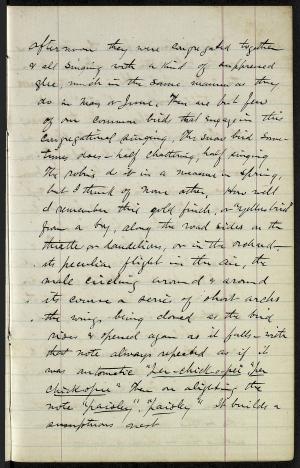 afternoon they were congregated together
& all singing with a kind of suppressed
glee, much in the same manner as they
do in May or June. There are but few
of our common birds that engage in this
congregational singing. The snow bird some-
times does - half chattering, half singing
the robins do it in a measure in spring,
but I think of none other. How well
I remember this gold finch, or "yellow bird"
from a boy, along the road sides on the
thistle or dandelions, or in the orchard -
its peculiar flight in the air, the
male circling around & around
its course a series of short archs
the wings being closed as the bird
rises & opened again as it falls - with
that note always repeated as if it
was automatic "per-chick-opee" "per
chick-opee" Then on alighting the
note "paisley", "paisley". It builds a
sumptuous nest